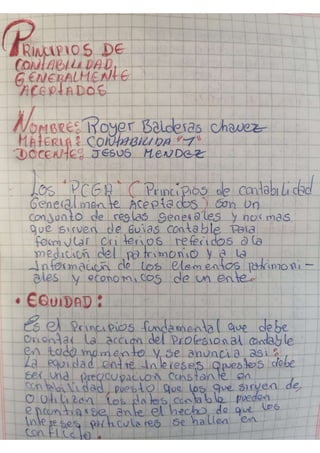 PRINCIPIOS DE
CONTABILIDAD,
GENERALMENTE
ACEPTADOS
NOMBRE: Royer Balderas chavez
MATERIA: CONTABILIDA "1"
DOCENTE: JESUS MENDEZ
LOS "PCGA" ( Principios de contabilidad
Generalmente Aceptados) son un
conjunto de reglas generales y normas
que sirven de Guias contable para
formular criterios referidos a la
medición del patrimonio y a la
Información de los elementos patrimoni-
ales y economicos de un ente.
• EQUIDAD:
Es el Principios fundamental que debe
Orientar la acción del Profesional contable
en todo momento y se anuncia asi:
La equidad entre Intereses opuestos debe
ser una preocupación constante en
contabilidad, puesto que los que sirven de
o Utilizan los datos contable pueden
encontrarse ante el hecho de que los
Intereses particulares se hallen en
conflicto.